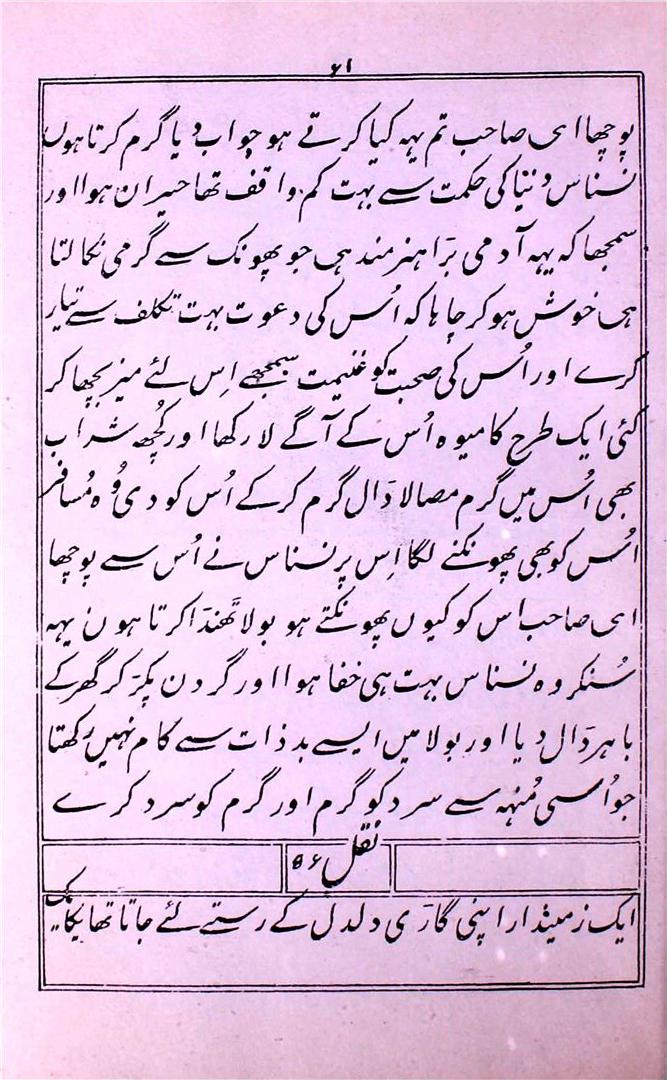 ۶۱
پوچھا ای صاحب تم یہہ کیا کرتے ہو جواب دیا گرم کرتا ہوں
نسناس دنیا کی حکمت سے بہت کم واقف تھا حیران ہوا اور
سمجھا کہ یہہ آدمی بڑا ہنرمند ہی جو پھونک سے گرمی نکالتا
ہی خوش ہو کر چاہا کہ اُس کی دعوت بہت تکلف سے تیار
کرے اور اُس کی صحبت کو غنیمت سمجھے اِس لئے میز بچھا کر
کئی ایک طرح کا میوہ اُس کے آگے لا رکھا اور کُچھ شراب
بھی اُس میں گرم مصالا ڈال گرم کر کے اُس کو دی وُہ مُسافر
اُس کو بھی پھونکنے لگا اِس پر نسناس نے اُس سے پوچھا
ای صاحب اس کو کیوں پھونکتے ہو بولا ٹھنڈا کرتا ہوں یہہ
سُنکر وہ نسناس بہت ہی خفا ہوا اور گردن پکڑ کر گھر کے
باہر ڈال دیا اور بولا میں ایسے بدذات سے کام نہیں رکھتا
جو اُسی مُنہہ سے سرد کو گرم اور گرم کو سرد کرے
نقل ۵۶
ایک زمیندار اپنی گاڑی دلدل کے رستے لئے جاتا تھا یکایک